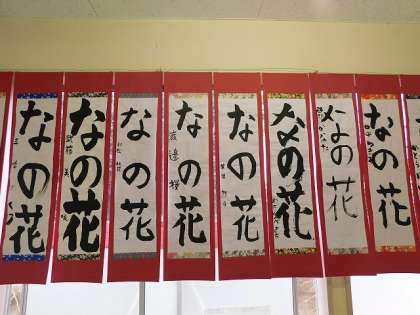 なの花
なの花
なの花
なの花
なの花
なの花
なの花
なの花